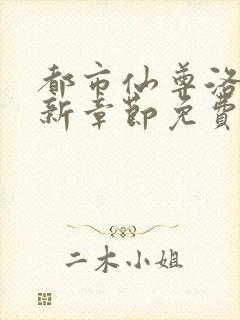 都市仙尊洛
新章節免費
二木小姐